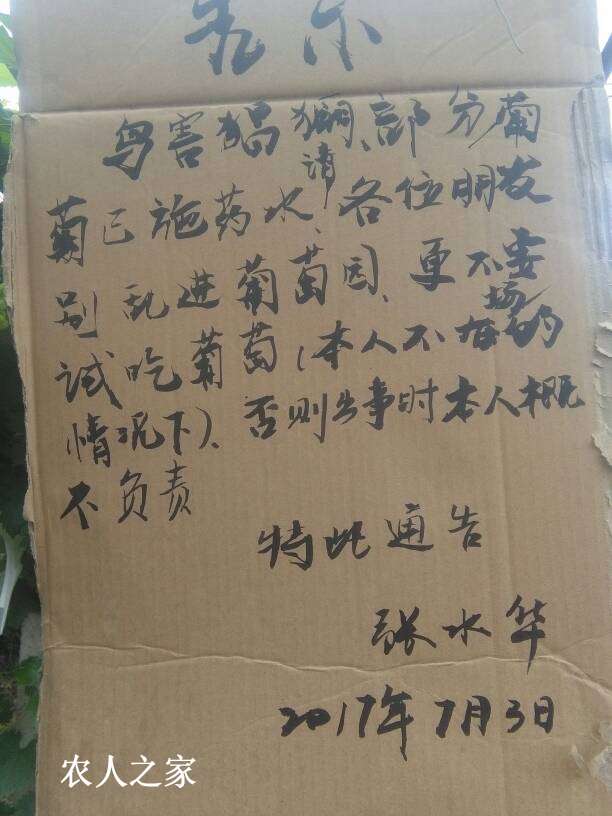 示
鸟害猖獗、部分葡
萄已施药水、请各位朋友
别乱进葡萄园、更不要
试吃葡萄(本人不在场的
情况下)、否则出事时本人概
不负责
特此通告
张水华
2017年7月3日
农人之家